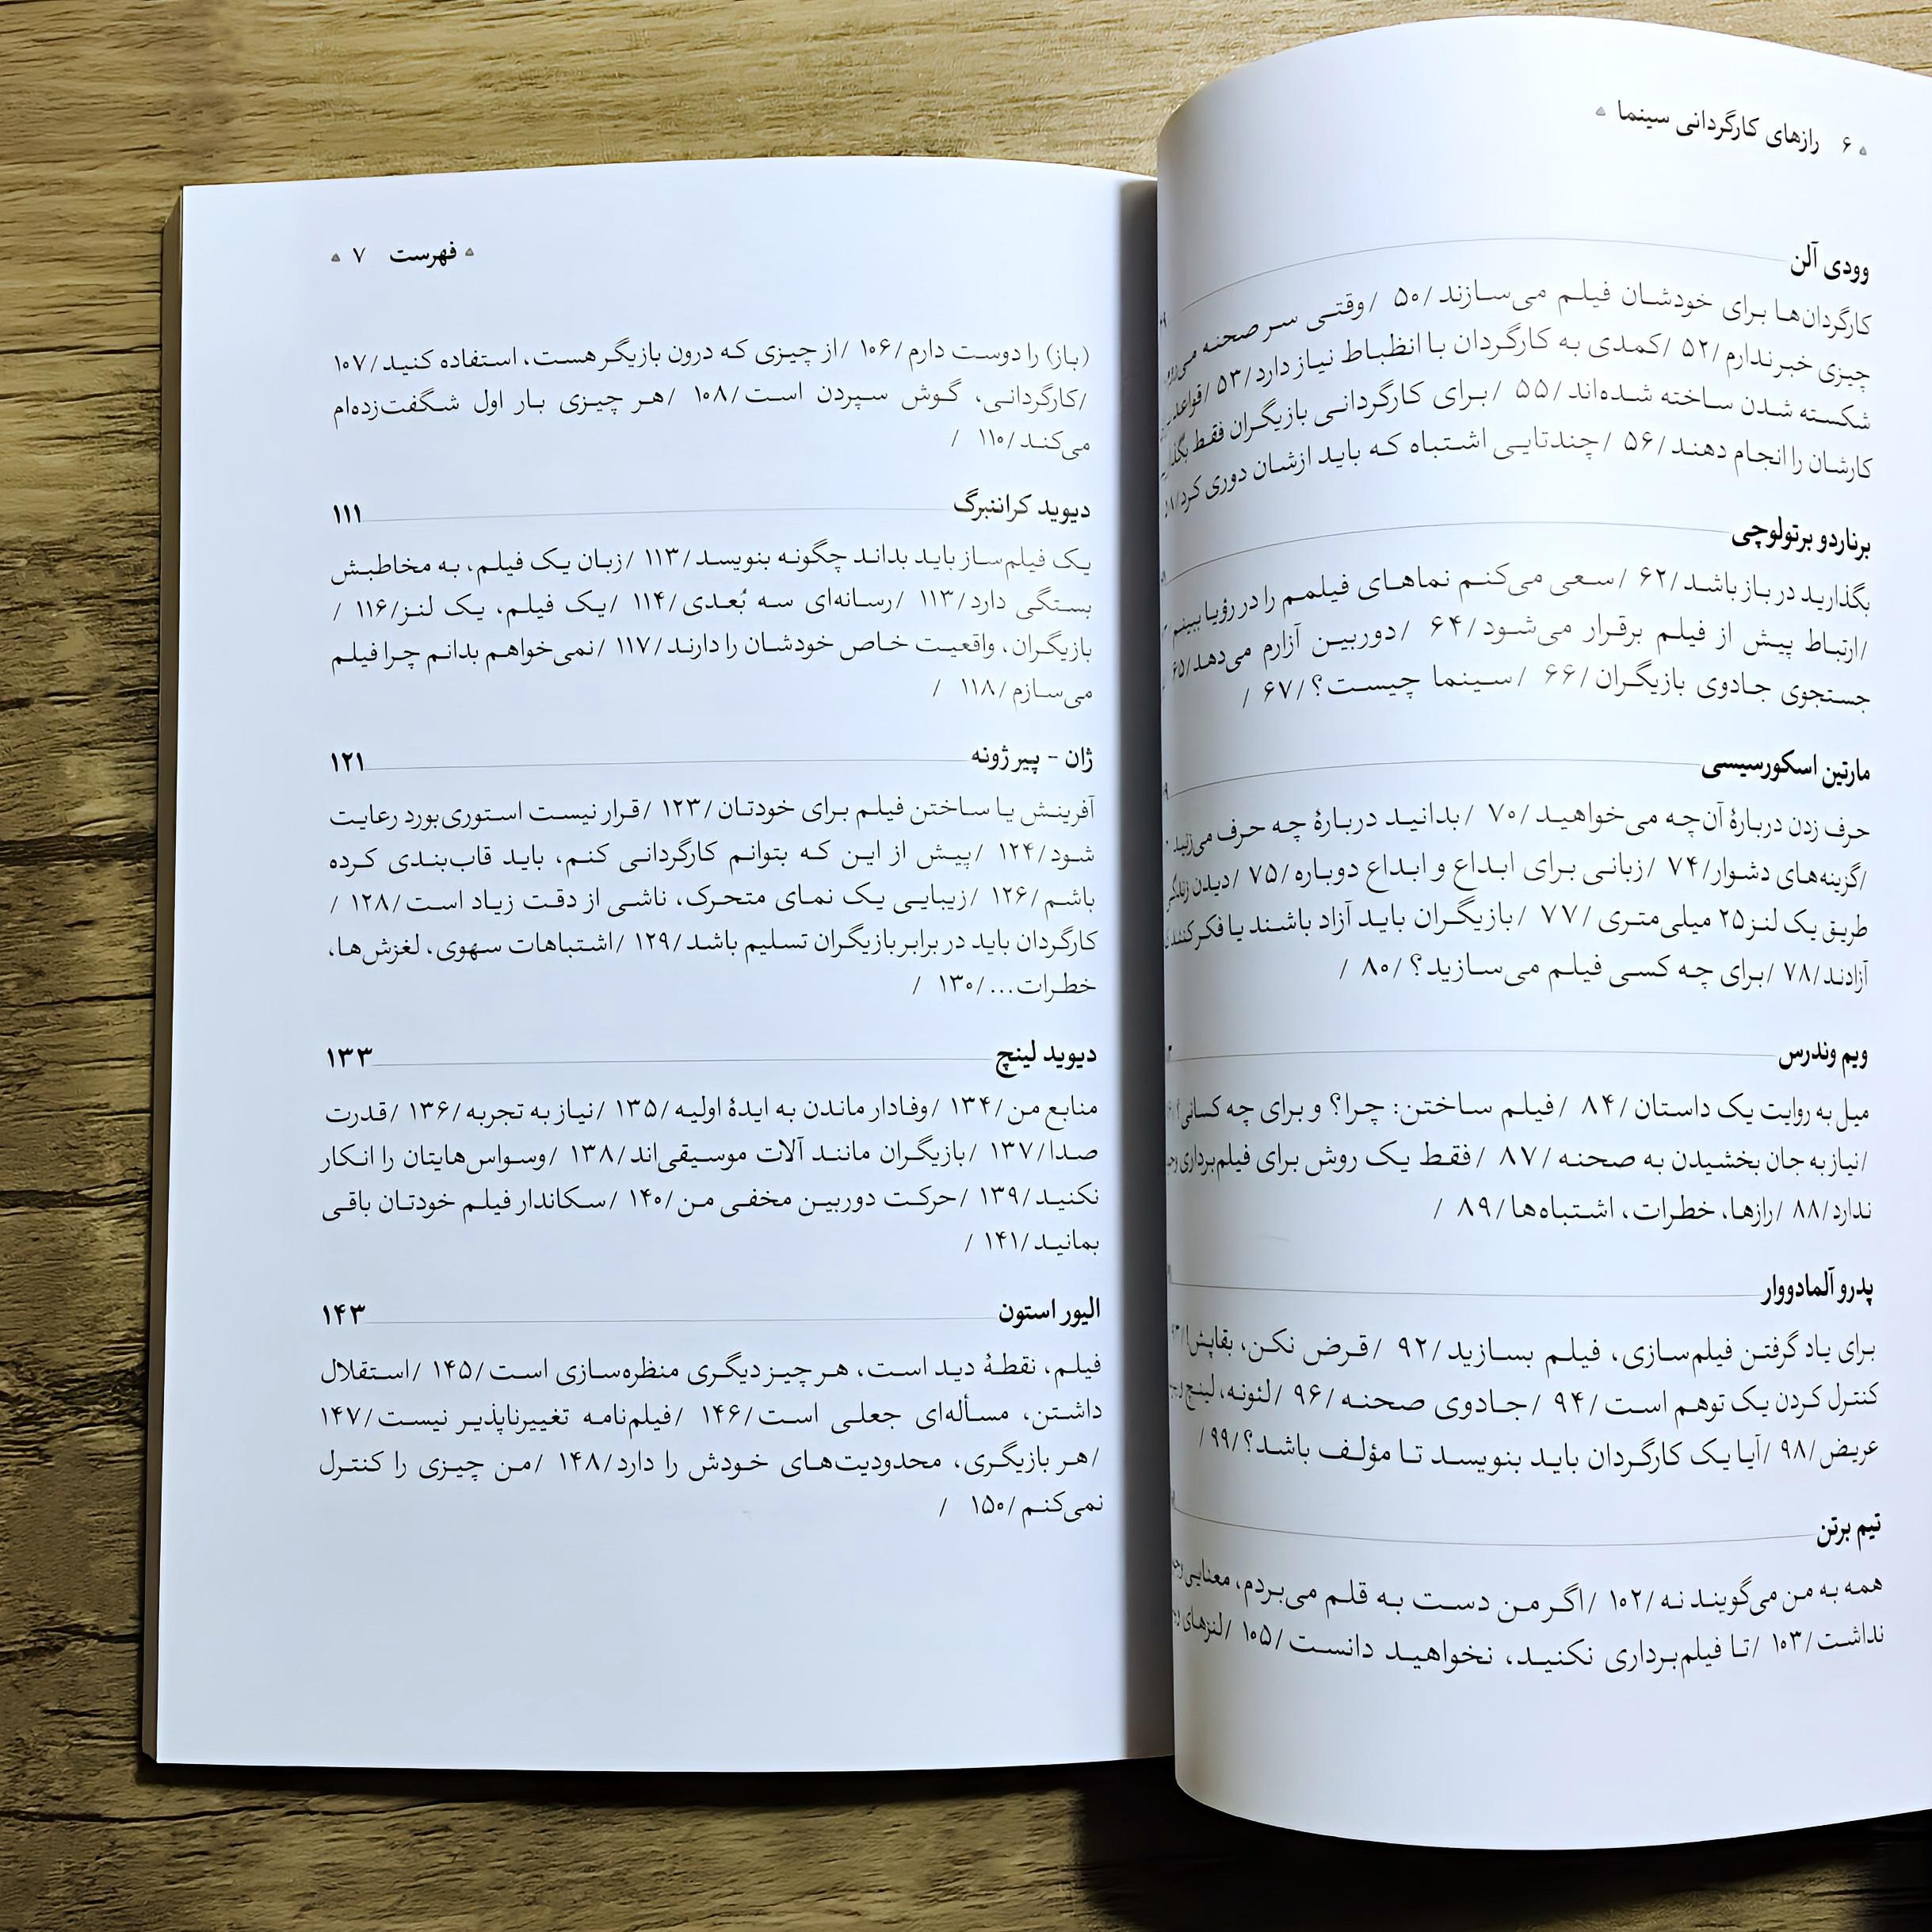 ۶ رازهای کارگردانی سینما
وودی آلن
کارگردان‌ها برای خودشان فیلم می‌سازند/۵۰ /وقتی سر صحنه
چیزی خبر ندارم/۵۲ /کمدی به کارگردان با انظباط نیاز دارد/۵۳ /قواعد
شکسته شدن ساخته شده‌اند/۵۵ /برای کارگردانی بازیگران فقط
کارشان را انجام دهند/۵۶ /چندتایی اشتباه که باید ازشان دوری کرد/
برناردو برتولوچی
بگذارید در باز باشد/۶۲ /سعی می‌کنم نماهای فیلمم را در رؤیا ببینم
/ارتباط پیش از فیلم برقرار می‌شود/۶۴ /دوربین آزارم می‌دهد/۶۵
جستجوی جادوی بازیگران/۶۶ /سینما چیست؟/۶۷ /
مارتین اسکورسیسی
حرف زدن دربارهٔ آن‌چه می‌خواهید/۷۰ /بدانید دربارهٔ چه حرف می‌زنید
/گزینه‌های دشوار/۷۴ /زبانی برای ابداع و ابداع دوباره/۷۵ /دیدن
طریق یک لنز ۲۵ میلی‌متری/۷۷ /بازیگران باید آزاد باشند یا فکر کنند
آزادند/۷۸ /برای چه کسی فیلم می‌سازید؟/۸۰ /
ویم وندرس
میل به روایت یک داستان/۸۴ /فیلم ساختن: چرا؟ و برای چه کسانی؟
/نیاز به جان بخشیدن به صحنه/۸۷ /فقط یک روش برای فیلم‌برداری
ندارد/۸۸ /رازها، خطرات، اشتباه‌ها/۸۹ /
پدرو آلمادووار
برای یاد گرفتن فیلم‌سازی، فیلم بسازید/۹۲ /قرض نکن، بقاپش!
کنترل کردن یک توهم است/۹۴ /جادوی صحنه/۹۶ /لئونه، لینچ
عریض/۹۸ /آیا یک کارگردان باید بنویسد تا مؤلف باشد؟/۹۹ /
تیم برتن
همه به من می‌گویند نه/۱۰۲ /اگر من دست به قلم می‌بردم، معنایی
نداشت/۱۰۳ /تا فیلم‌برداری نکنید، نخواهید دانست/۱۰۵ /لنزهای
فهرست ۷
(باز) را دوست دارم/۱۰۶ /از چیزی که درون بازیگر هست، استفاده کنید/۱۰۷
/کارگردانی، گوش سپردن است/۱۰۸ /هر چیزی بار اول شگفت‌زده‌ام
می‌کند/۱۱۰ /
دیوید کراننبرگ ۱۱۱
یک فیلم‌ساز باید بداند چگونه بنویسد/۱۱۳ /زبان یک فیلم، به مخاطبش
بستگی دارد/۱۱۳ /رسانه‌ای سه بُعدی/۱۱۴ /یک فیلم، یک لنز/۱۱۶ /
بازیگران، واقعیت خاص خودشان را دارند/۱۱۷ /نمی‌خواهم بدانم چرا فیلم
می‌سازم/۱۱۸ /
ژان - پیر ژونه ۱۲۱
آفرینش یا ساختن فیلم برای خودتان/۱۲۳ /قرار نیست استوری‌بورد رعایت
شود/۱۲۴ /پیش از این که بتوانم کارگردانی کنم، باید قاب‌بندی کرده
باشم/۱۲۶ /زیبایی یک نمای متحرک، ناشی از دقت زیاد است/۱۲۸ /
کارگردان باید در برابر بازیگران تسلیم باشد/۱۲۹ /اشتباهات سهوی، لغزش‌ها،
خطرات.../۱۳۰ /
دیوید لینچ ۱۳۳
منابع من/۱۳۴ /وفادار ماندن به ایدهٔ اولیه/۱۳۵ /نیاز به تجربه/۱۳۶ /قدرت
صدا/۱۳۷ /بازیگران مانند آلات موسیقی‌اند/۱۳۸ /وسواس‌هایتان را انکار
نکنید/۱۳۹ /حرکت دوربین مخفی من/۱۴۰ /سکاندار فیلم خودتان باقی
بمانید/۱۴۱ /
الیور استون ۱۴۳
فیلم، نقطهٔ دید است، هر چیز دیگری منظره‌سازی است/۱۴۵ /استقلال
داشتن، مسأله‌ای جعلی است/۱۴۶ /فیلم‌نامه تغییرناپذیر نیست/۱۴۷
/هر بازیگری، محدودیت‌های خودش را دارد/۱۴۸ /من چیزی را کنترل
نمی‌کنم/۱۵۰ /